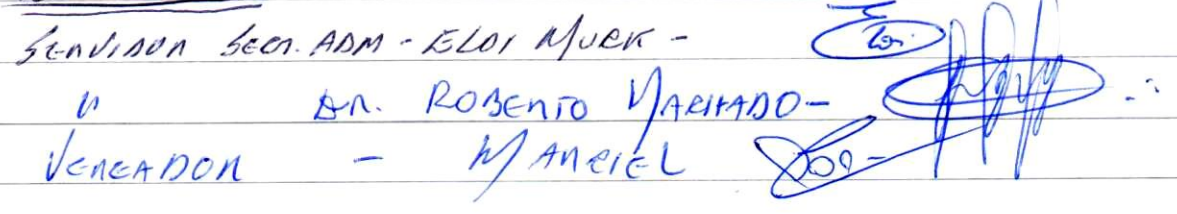 SERVIDOR SECR. ADM - ELOI MUCK -
" DR. ROBERTO MACHADO -
VEREADOR - MARCIEL